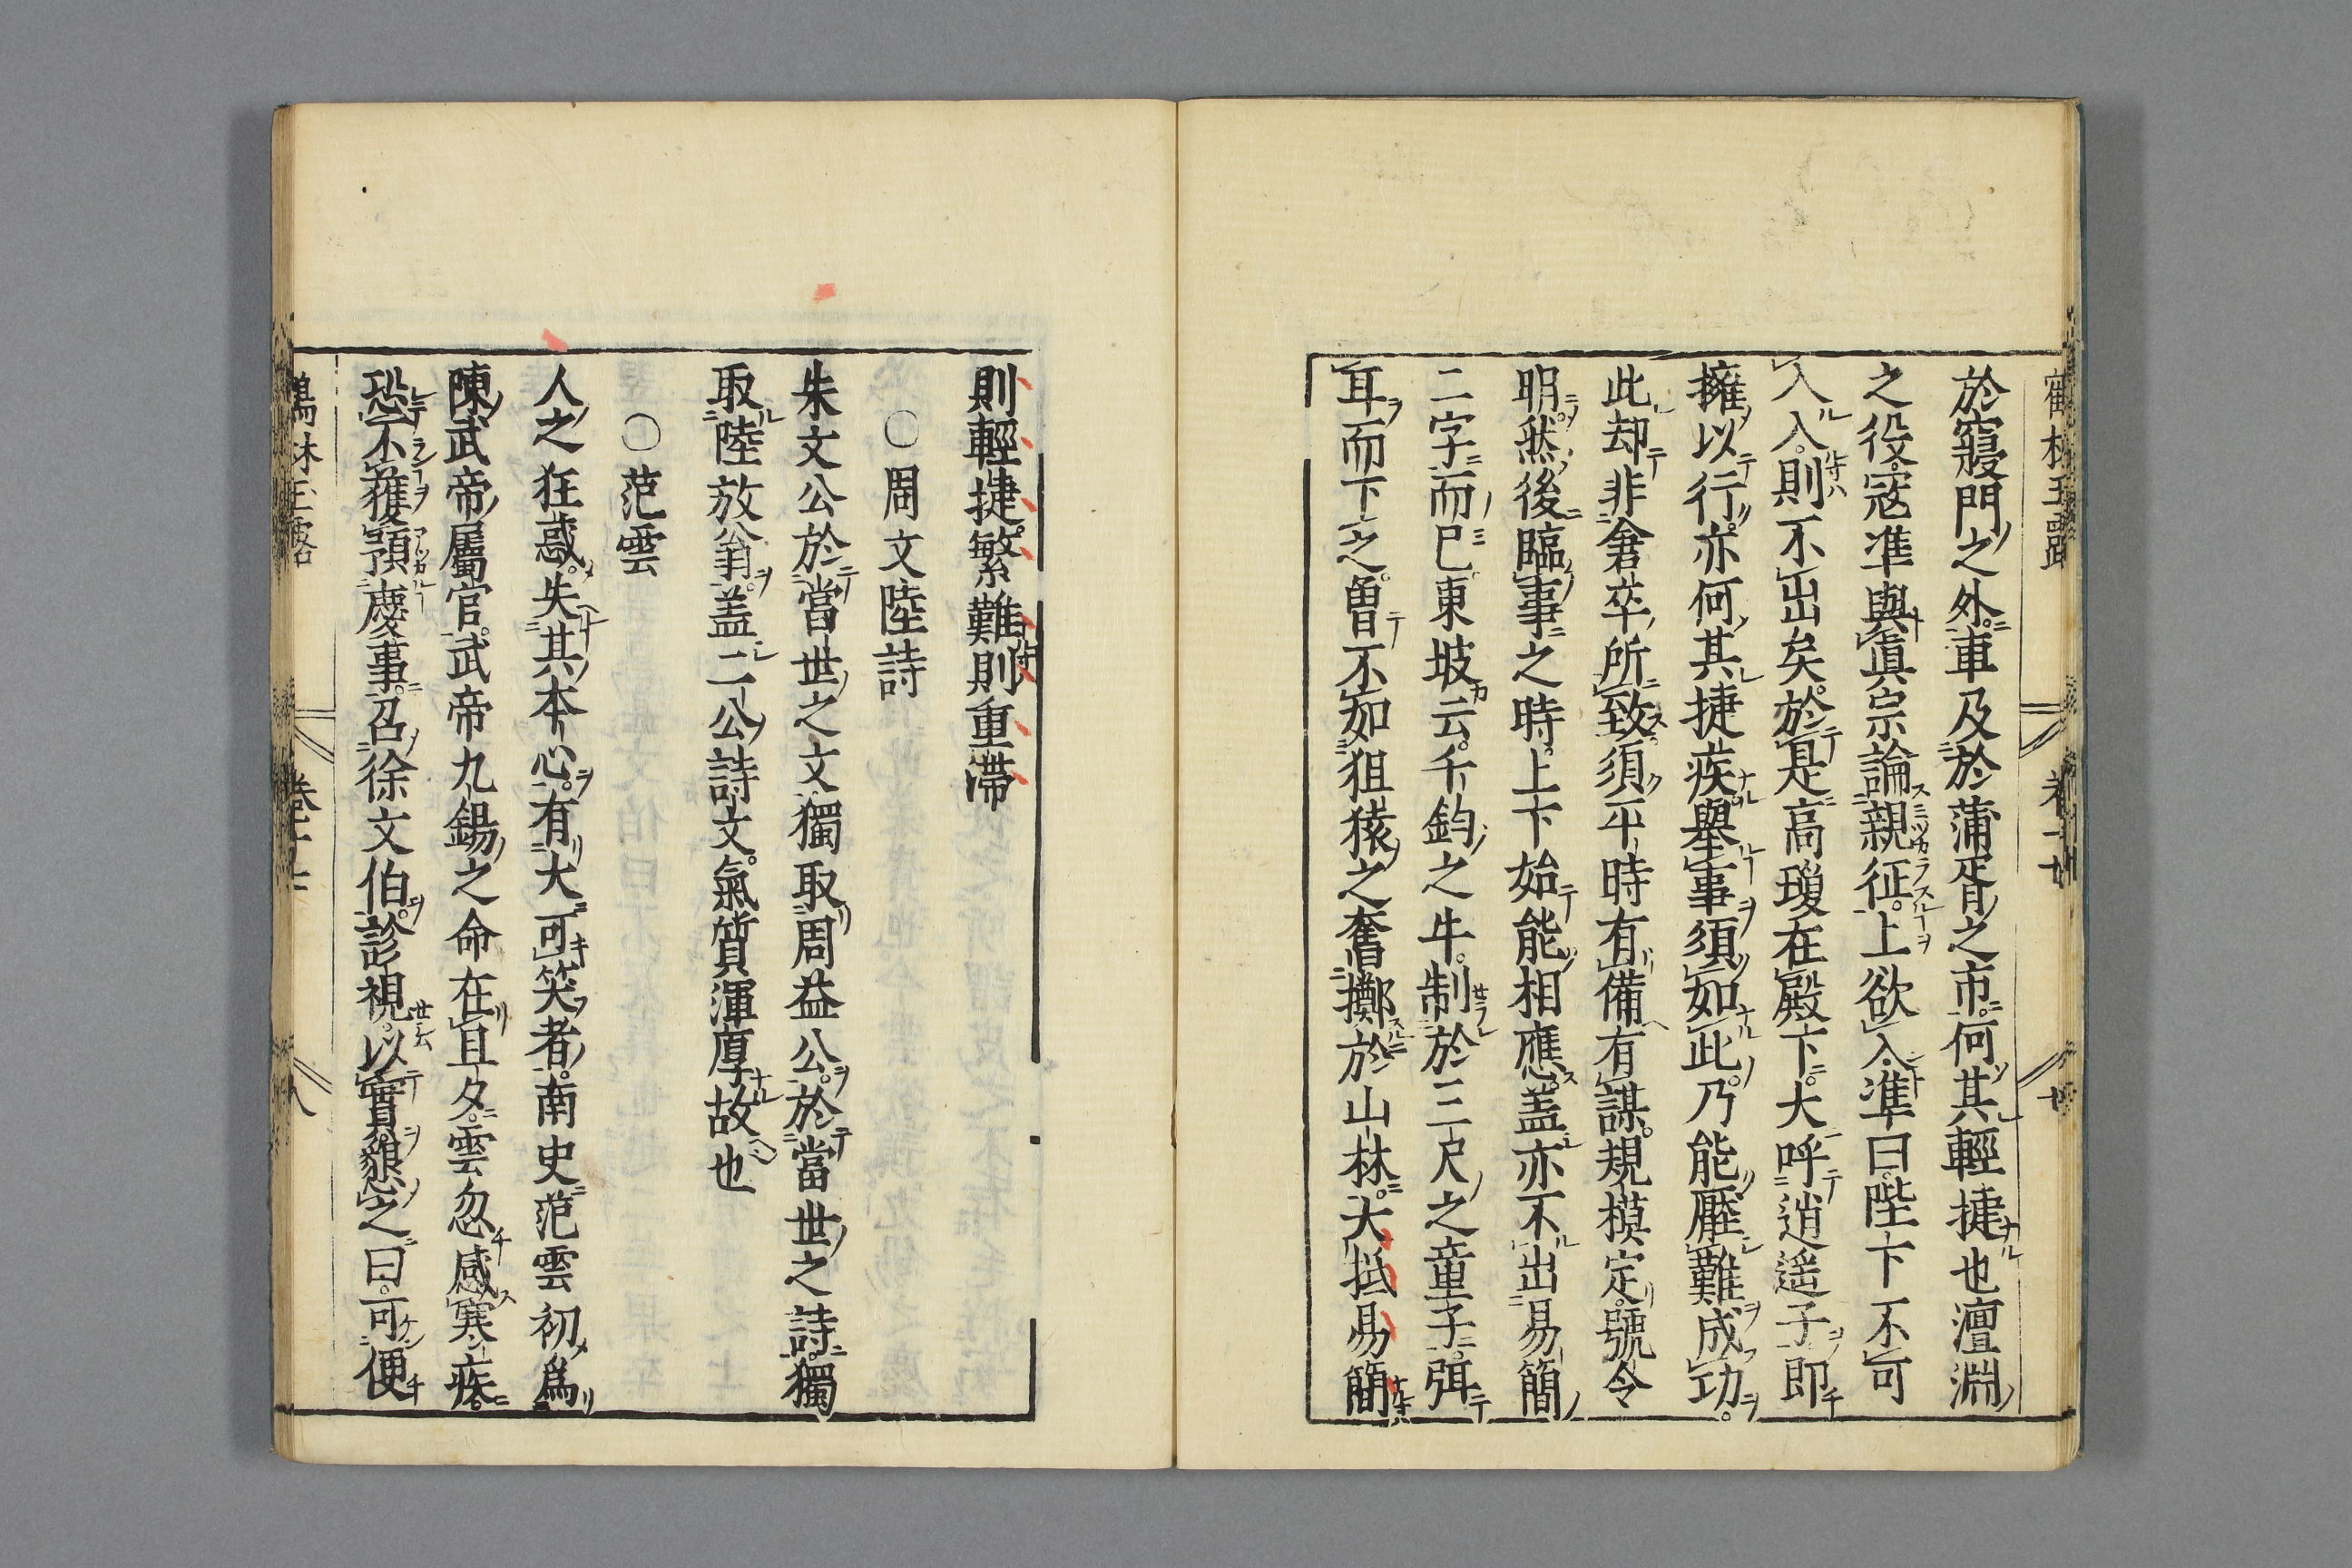 於寢門之外車及於蒲胥之市何其輕捷也澶淵
之役寇準與眞宗論親征上欲入準曰陛下不可
入入則不出矣於是高瓊在殿下大呼逍遥子即
擁以行亦何其捷疾舉事須如此乃能壓難成功
此却非倉卒所致須平時有備有謀規模定號令
明然後臨事之時上下始能相應盖亦不出易簡
二字而已東坡云千鈞之牛制於三尺之童子弭
耳而下之曽不如狙猿之奮擲於山林大抵易簡
則輕捷繁難則重滯
〇周文陸詩
朱文公於當世之文獨取周益公於當世之詩獨
取陸放翁盖二公詩文氣質渾厚故也
〇范雲
人之狂惑失其本心有大可笑者南史范雲初爲
陳武帝屬官武帝九錫之命在旦夕雲忽感寒疾
恐不獲預慶事召徐文伯診視以實懇之曰可便